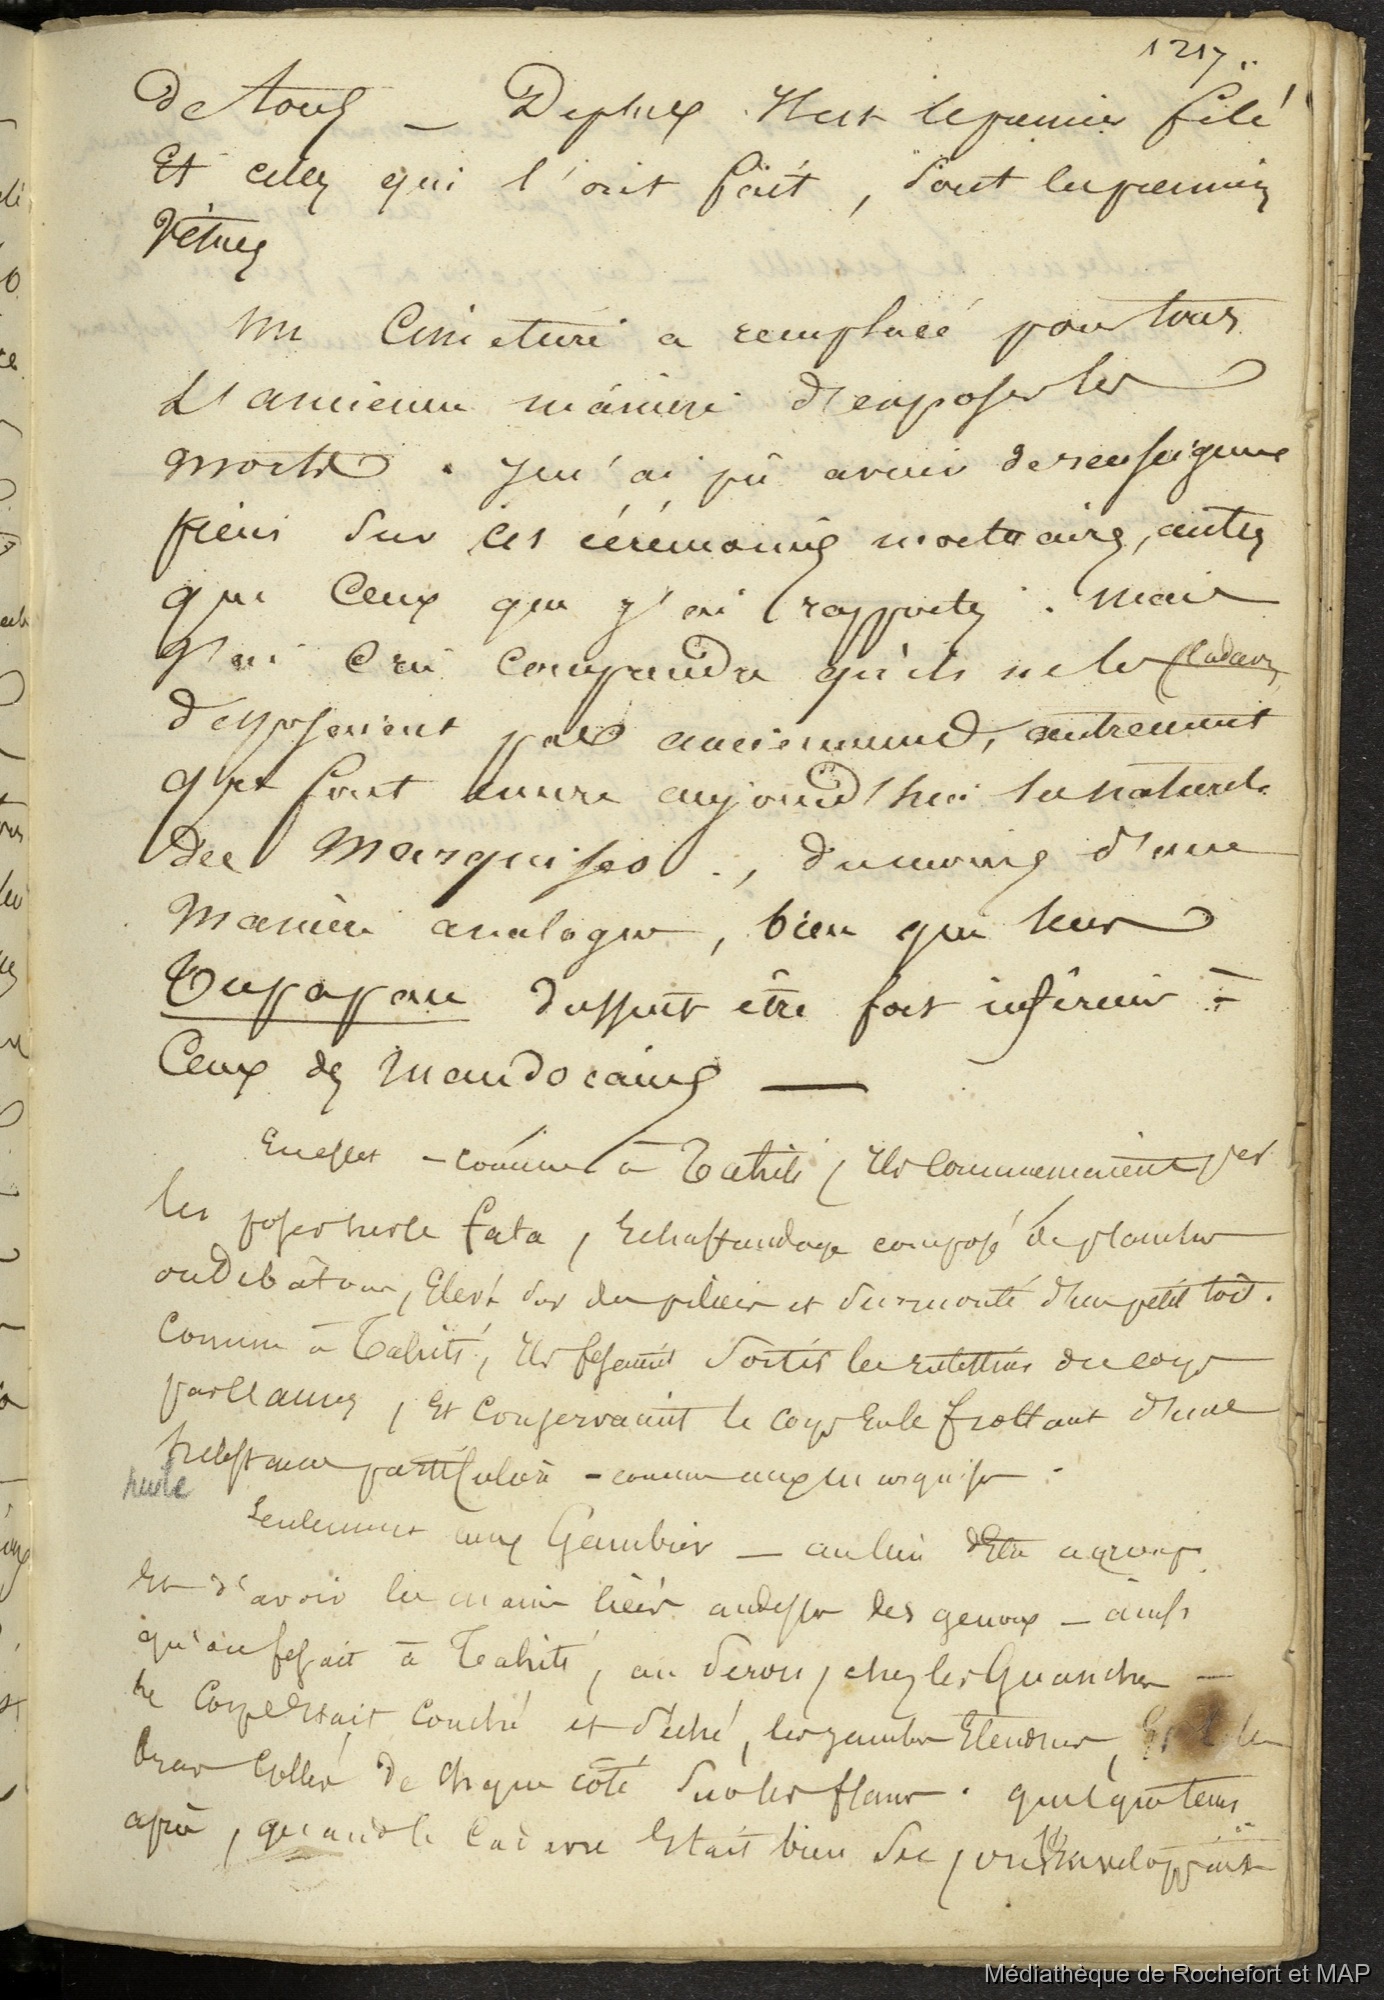 1217..
de tous _ De plus Il est le premier filé
Et celles qui l'ont fait, sont les premieres
Vêtues
Un Cimetiere a remplacé pour tous
L'ancienne maniere d'exposer les
morts. je n'ai pû avoir de renseigne
mens sur les cérémonies mortuaires, autres
que Ceux que j'ai rapportés. mais
J'ai Cru comprendre qu'ils ne les (Cadavres
déposaient pas anciennement, autrement
que font encore aujourd'hui les naturels
des Marquises., du moins d'une
Maniere analogue, bien que leurs
Tupapau dussent être fort inférieurs à
Ceux des Mendocains __
En effet - comme à Tahiti, Ils Commencaient par
les poser sur le fata, Echaffaudage composé de planches
ou de bâtons, Elevé sur des piliers et surmonté d'un petit toit.
Comme à Tahiti, Ils fesaient sortir les intestins du corps
par l'anus, Et Conservaient le corps En le frottant d'une
substance particulière - comme aux marquises.
huile
Seulement aux Gambier _ au lieu d'Etre accroupi
Et d'avoir les mains liées au dessus des genoux _ ainsi
qu'on fesait à Tahiti, au Perou, chez les Guanches _
le Corps Etait Couché et séché, les jambes Etendues, Et les
bras Collés de chaque côté sur les flancs. quelque tems
après, quand le Cadavre Etait bien sec, on l'Enveloppait
Médiathèque de Rochefort et MAP